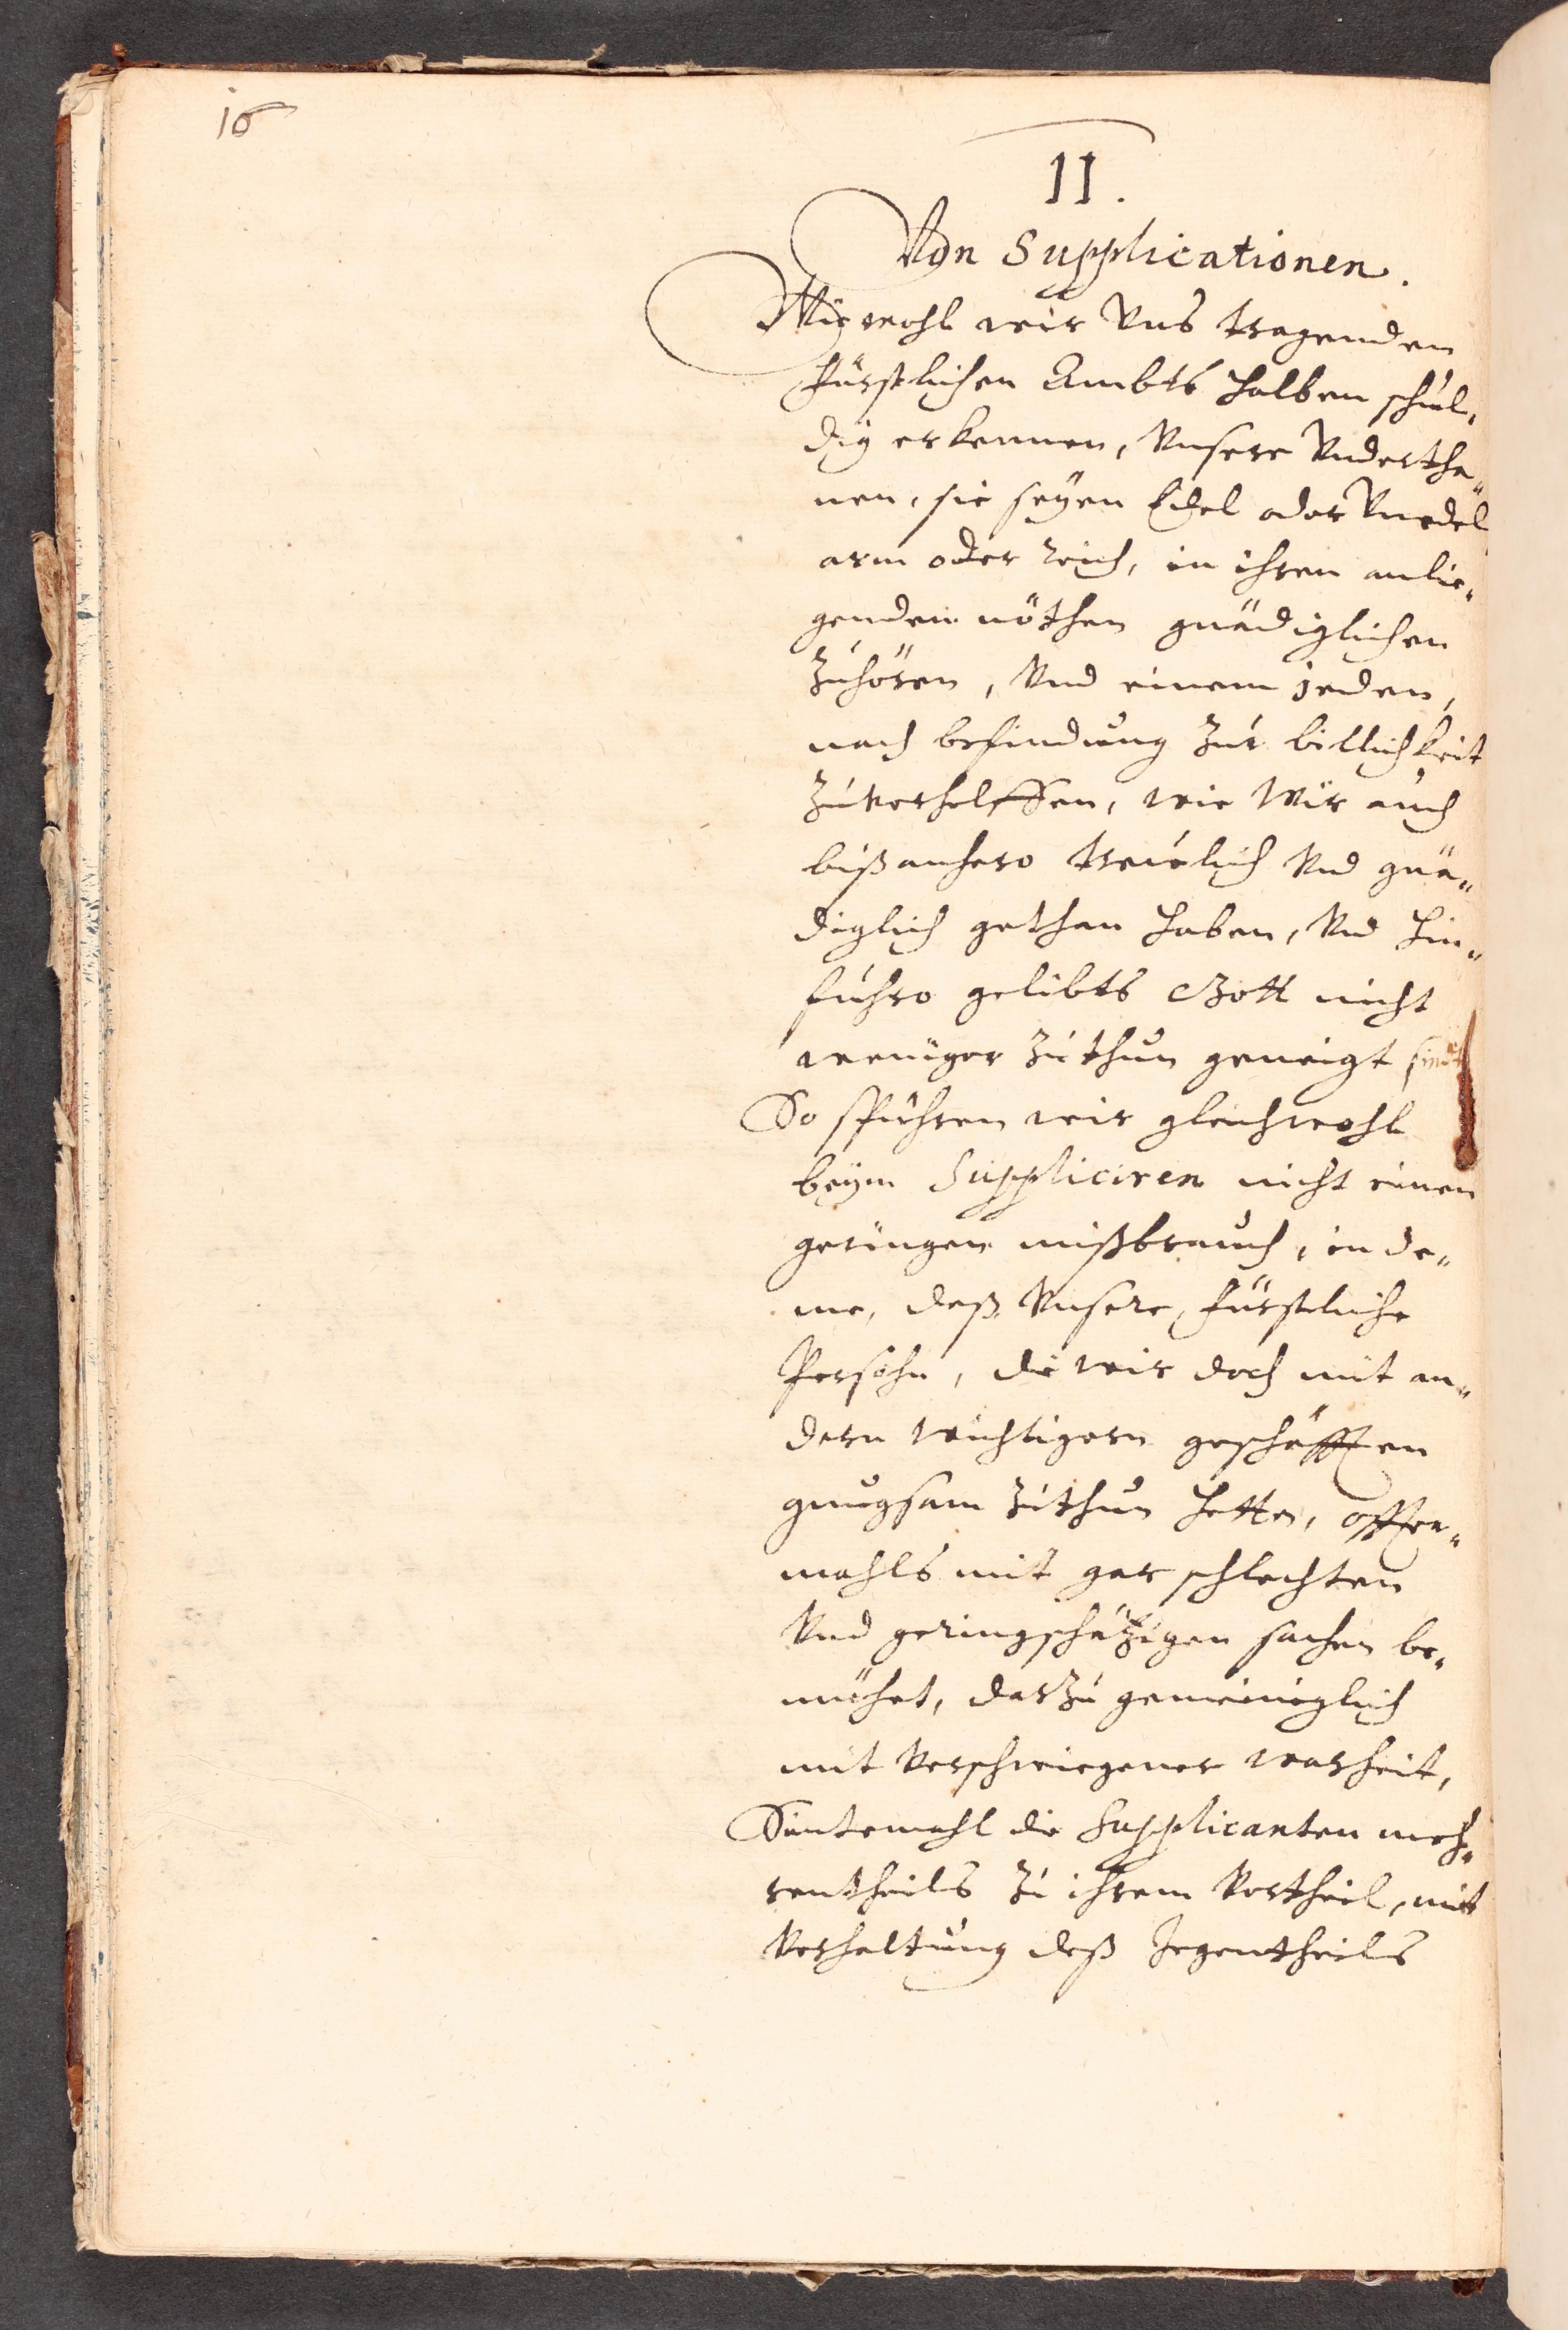 16
II.
Von Supplicationen.
Wiewohl wir Uns tragenden
fürstlichen Ambts halben schul„
dig erkennen, Unsere Undertha„
nen, sie seyen Edel oder Unedel
arm oder reich, in ihren anlie„
genden nöthen gnädiglichen
zuhören, Und einem jeden,
nach befindung zur billichkeit
zuverhelffen, wie Wir auch
bißanhero treulich Und gnä„
diglich gethan haben, Und hin„
führo geliebts Gott nicht
weniger zu thun geneigt sindt
So spühren wir gleichwohl
beym Suppliciren nicht einen
geringen mißbrauch, in de„
me, daß Unsere, fürstliche
Persohn, die wir doch mit an„
dern wichtigern geschäfften
gnugsam zuthun hetten, offter„
mahls mit gar schlechten
Und geringschätzigen sachen be„
mühet, darzu gemeiniglich
mit Verschwiegener warheit,
Sintemahl die Supplicanten meh„
rentheils zu ihrem Vortheil, mit
Verhaltung deß Jegentheils